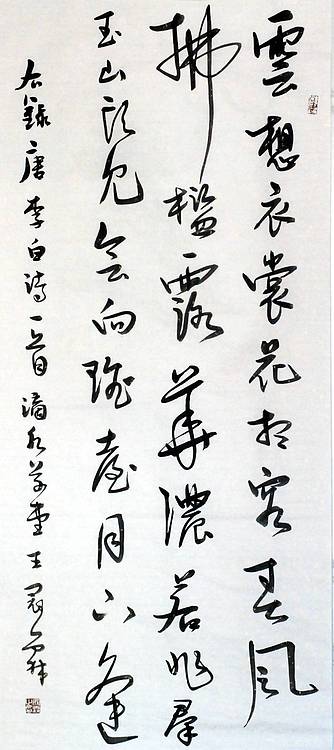 雲想衣裳花想容春風
拂檻露華濃若非群
玉山頭見會向瑤臺月下逢
右錄唐李白詩一首滴水草堂王